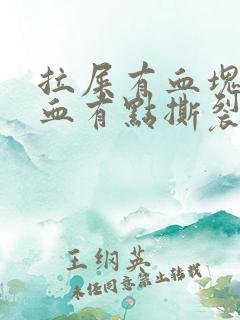 拉屎有血塊
血有點撕裂
王纲英
未经同意禁止转载